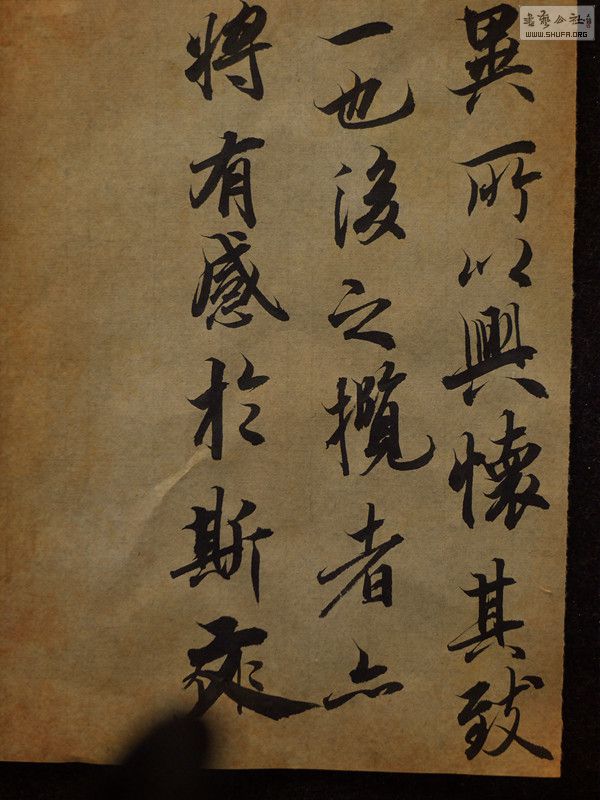 異所以興懷其致
一也後之攬者亦
將有感於斯文
書藝公社
WWW.SHUFA.ORG